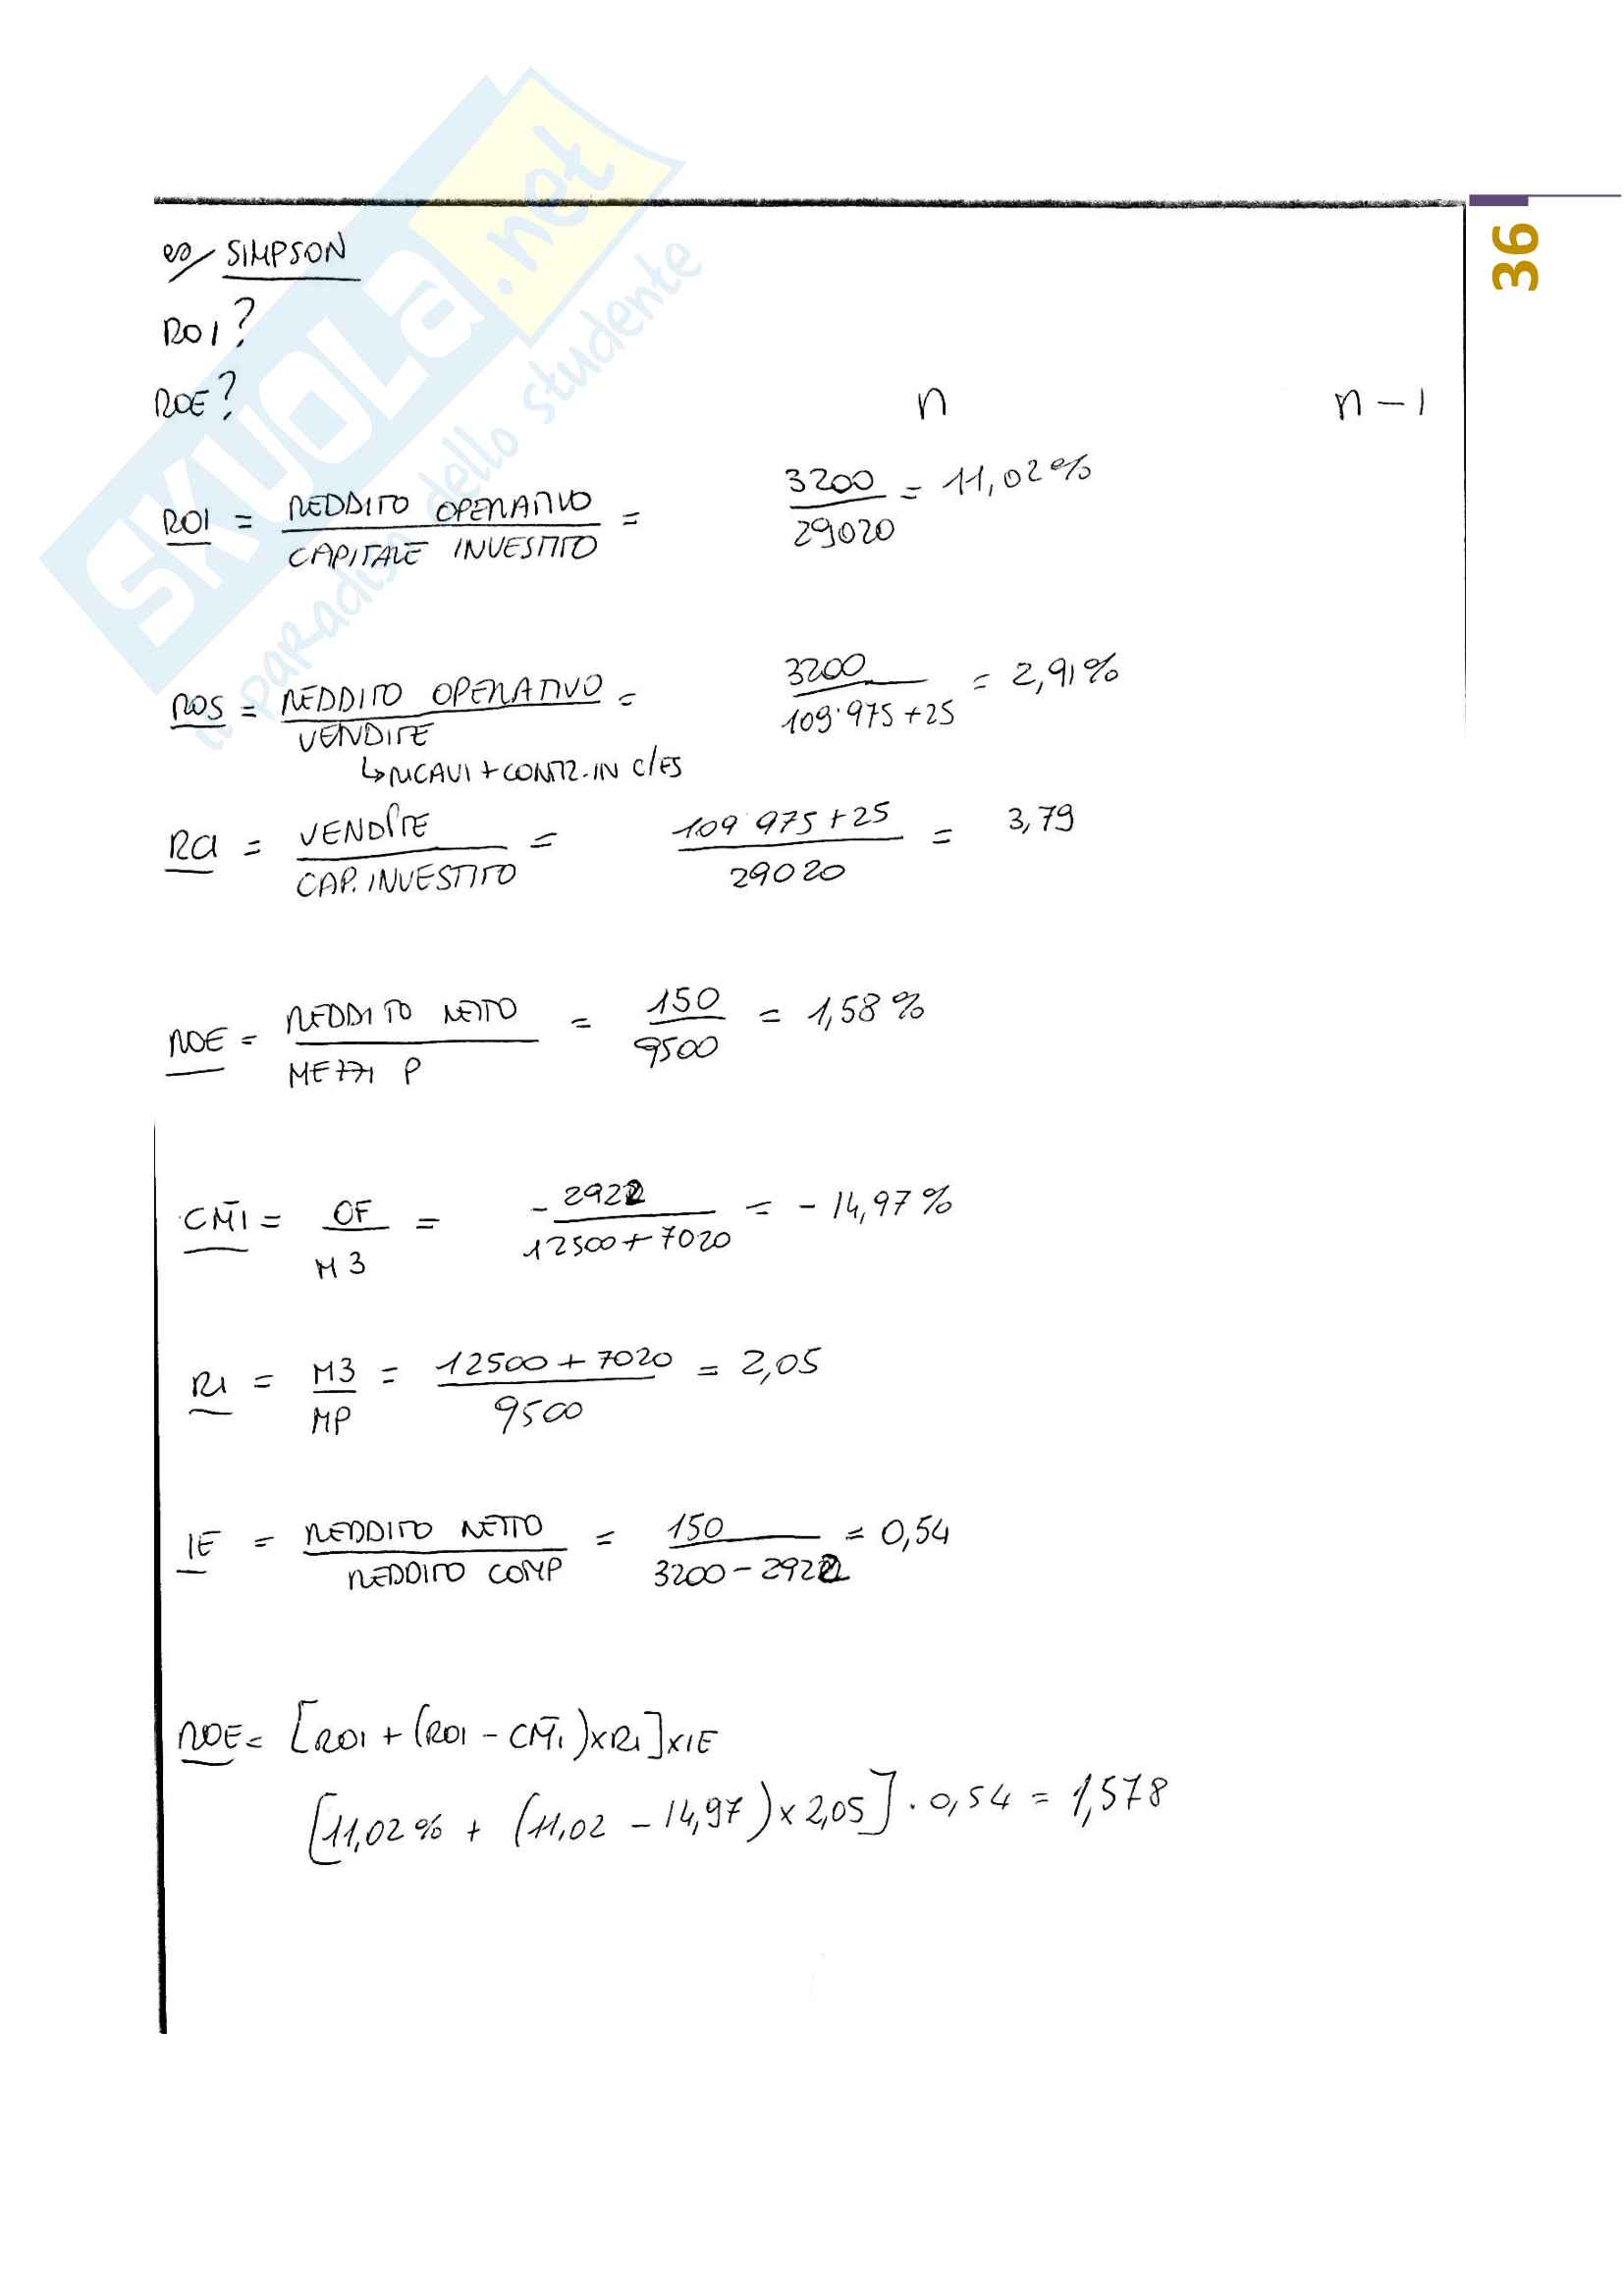 SKUOLA.net
il paradiso dello studente
36
es/ SIMPSON
ROI?
ROE?
n n-1
ROI = REDDITO OPERATIVO / CAPITALE INVESTITO = 3200 / 29020 = 11,02%
ROS = REDDITO OPERATIVO / VENDITE = 3200 / 109·975+25 = 2,91%
↳ RICAVI + CONTR. IN C/ES
RCI = VENDITE / CAP. INVESTITO = 109 975+25 / 29020 = 3,79
ROE = REDDITO NETTO / MEZZI P = 150 / 9500 = 1,58%
CM̄1 = OF / M3 = -2922 / 12500+7020 = -14,97%
RI = M3 / MP = 12500+7020 / 9500 = 2,05
IE = REDDITO NETTO / REDDITO COMP = 150 / 3200-2922 = 0,54
ROE = [ROI + (ROI - CM̄1)xRI]xIE
[11,02% + (11,02 - 14,97)x2,05]·0,54 = 1,578